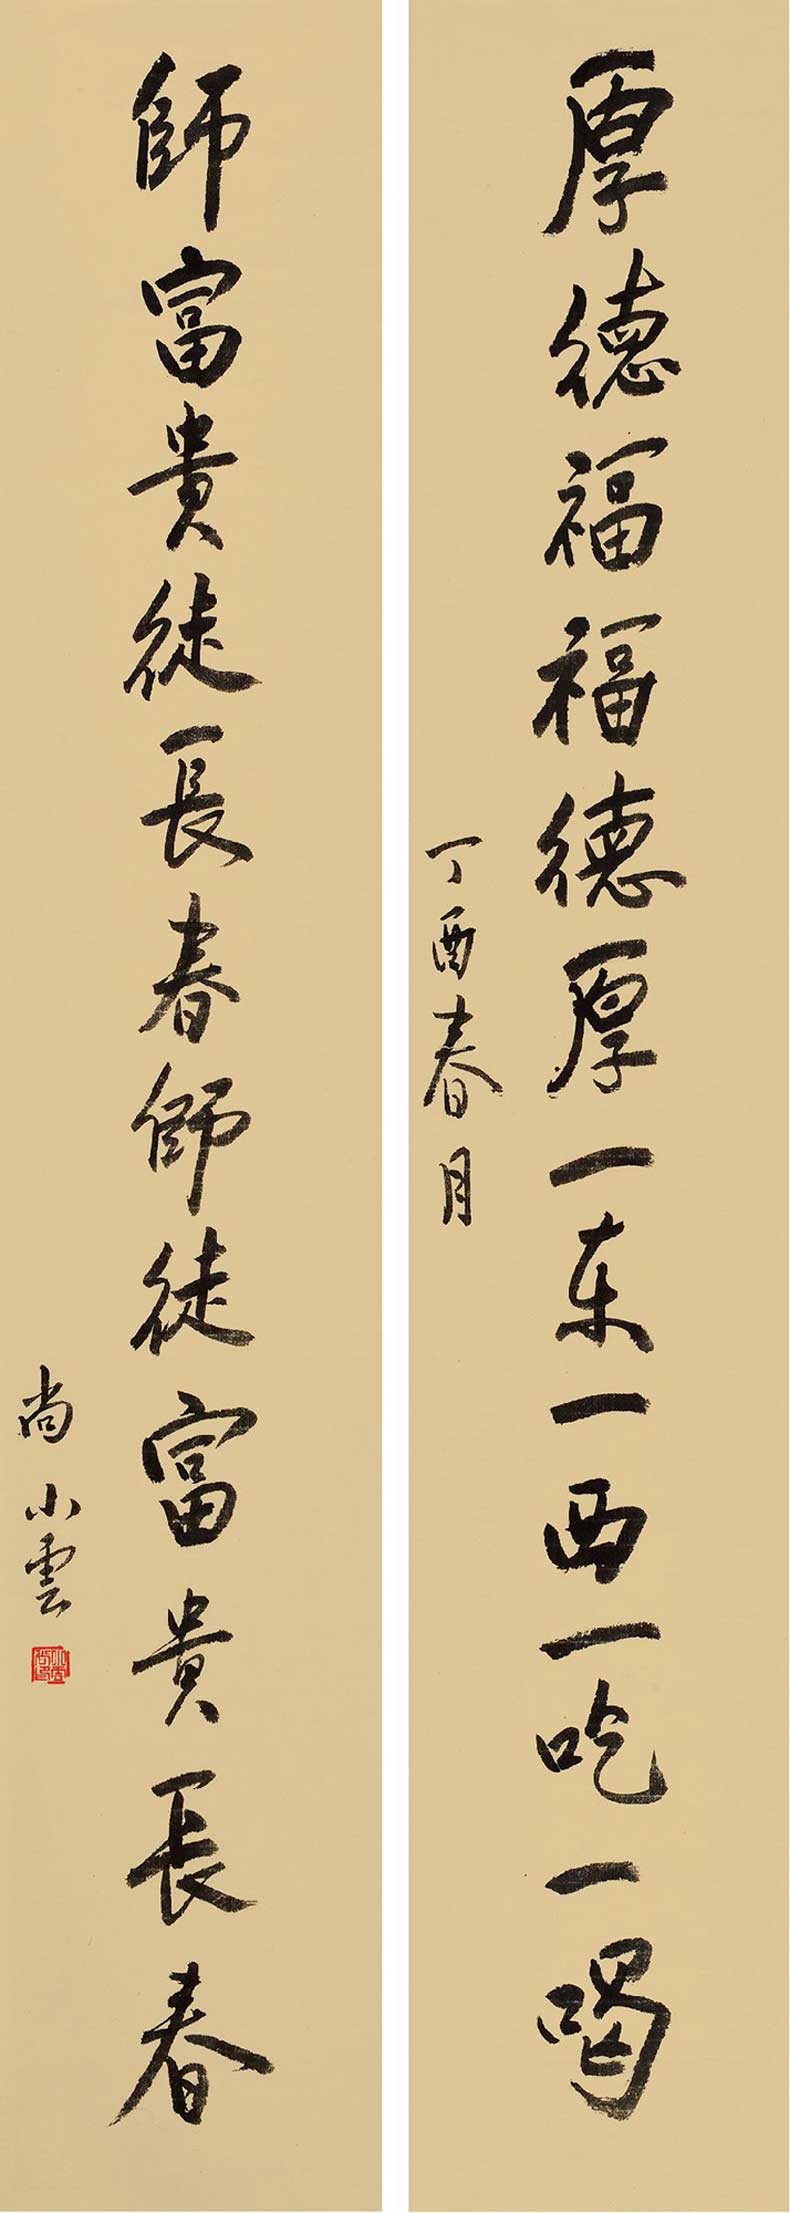 厚德福福德厚一东一西一吃一喝
丁酉春月
師富貴徒長春師徒富貴長春
尚小雲